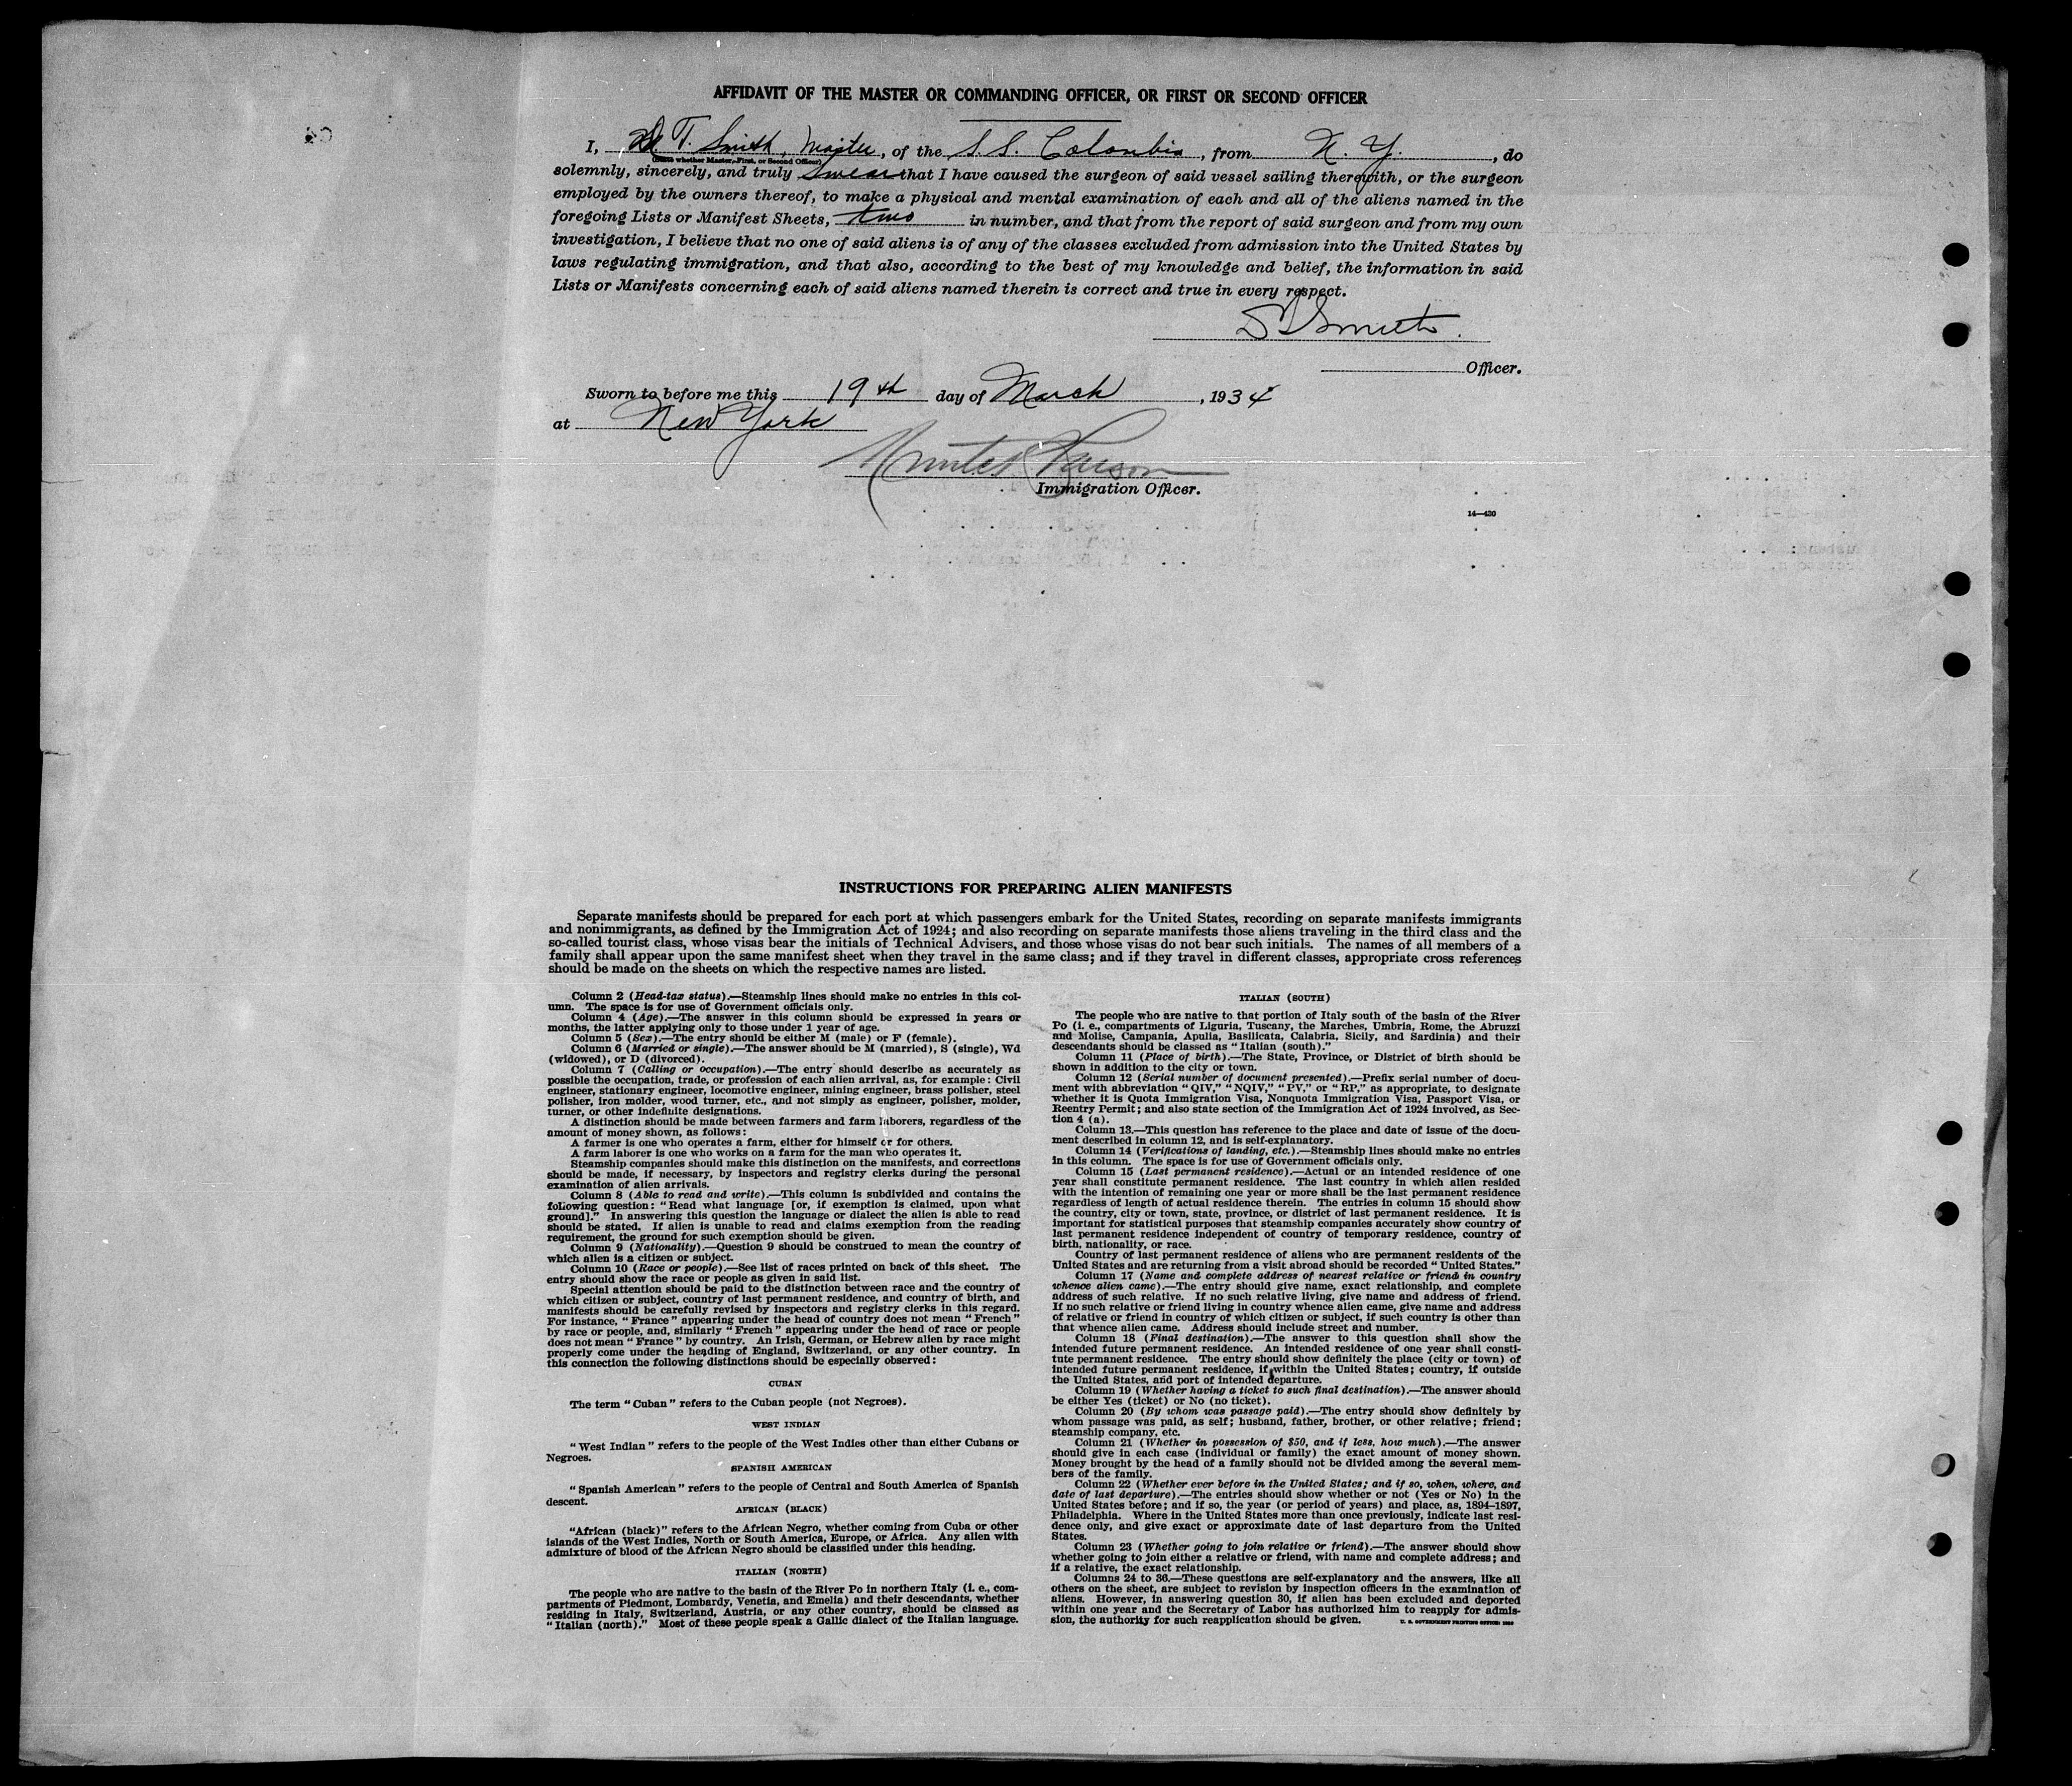 AFFIDAVIT OF THE MASTER OR COMMANDING OFFICER, OR FIRST OR SECOND OFFICER
I, T. Smith, Master, of the S.S. Colombia, from N. Y., do
(State whether Master, First, or Second Officer)
solemnly, sincerely, and truly swear that I have caused the surgeon of said vessel sailing therewith, or the surgeon
employed by the owners thereof, to make a physical and mental examination of each and all of the aliens named in the
foregoing Lists or Manifest Sheets, two in number, and that from the report of said surgeon and from my own
investigation, I believe that no one of said aliens is of any of the classes excluded from admission into the United States by
laws regulating immigration, and that also, according to the best of my knowledge and belief, the information in said
Lists or Manifests concerning each of said aliens named therein is correct and true in every respect.
Smith
Officer.
Sworn to before me this 19th day of March, 1934
at New York
Immigration Officer.
14—430
INSTRUCTIONS FOR PREPARING ALIEN MANIFESTS
Separate manifests should be prepared for each port at which passengers embark for the United States, recording on separate manifests immigrants
and nonimmigrants, as defined by the Immigration Act of 1924; and also recording on separate manifests those aliens traveling in the third class and the
so-called tourist class, whose visas bear the initials of Technical Advisers, and those whose visas do not bear such initials. The names of all members of a
family shall appear upon the same manifest sheet when they travel in the same class; and if they travel in different classes, appropriate cross references
should be made on the sheets on which the respective names are listed.
Column 2 (Head-tax status).—Steamship lines should make no entries in this col-
umn. The space is for use of Government officials only.
Column 4 (Age).—The answer in this column should be expressed in years or
months, the latter applying only to those under 1 year of age.
Column 5 (Sex).—The entry should be either M (male) or F (female).
Column 6 (Married or single).—The answer should be M (married), S (single), Wd
(widowed), or D (divorced).
Column 7 (Calling or occupation).—The entry should describe as accurately as
possible the occupation, trade, or profession of each alien arrival, as, for example: Civil
engineer, stationary engineer, locomotive engineer, mining engineer, brass polisher, steel
polisher, iron molder, wood turner, etc., and not simply as engineer, polisher, molder,
turner, or other indefinite designations.
A distinction should be made between farmers and farm laborers, regardless of the
amount of money shown, as follows:
A farmer is one who operates a farm, either for himself or for others.
A farm laborer is one who works on a farm for the man who operates it.
Steamship companies should make this distinction on the manifests, and corrections
should be made, if necessary, by inspectors and registry clerks during the personal
examination of alien arrivals.
Column 8 (Able to read and write).—This column is subdivided and contains the
following question: "Read what language [or, if exemption is claimed, upon what
ground]." In answering this question the language or dialect the alien is able to read
should be stated. If alien is unable to read and claims exemption from the reading
requirement, the ground for such exemption should be given.
Column 9 (Nationality).—Question 9 should be construed to mean the country of
which alien is a citizen or subject.
Column 10 (Race or people).—See list of races printed on back of this sheet. The
entry should show the race or people as given in said list.
Special attention should be paid to the distinction between race and the country of
which citizen or subject, country of last permanent residence, and country of birth, and
manifests should be carefully revised by inspectors and registry clerks in this regard.
For instance, "France" appearing under the head of country does not mean "French"
by race or people, and, similarly "French" appearing under the head of race or people
does not mean "France" by country. An Irish, German, or Hebrew alien by race might
properly come under the heading of England, Switzerland, or any other country. In
this connection the following distinctions should be especially observed:
CUBAN
The term "Cuban" refers to the Cuban people (not Negroes).
WEST INDIAN
"West Indian" refers to the people of the West Indies other than either Cubans or
Negroes.
SPANISH AMERICAN
"Spanish American" refers to the people of Central and South America of Spanish
descent.
AFRICAN (BLACK)
"African (black)" refers to the African Negro, whether coming from Cuba or other
islands of the West Indies, North or South America, Europe, or Africa. Any alien with
admixture of blood of the African Negro should be classified under this heading.
ITALIAN (NORTH)
The people who are native to the basin of the River Po in northern Italy (i. e., com-
partments of Piedmont, Lombardy, Venetia, and Emelia) and their descendants, whether
residing in Italy, Switzerland, Austria, or any other country, should be classed as
"Italian (north)." Most of these people speak a Gallic dialect of the Italian language.
ITALIAN (SOUTH)
The people who are native to that portion of Italy south of the basin of the River
Po (i. e., compartments of Liguria, Tuscany, the Marches, Umbria, Rome, the Abruzzi
and Molise, Campania, Apulia, Basilicata, Calabria, Sicily, and Sardinia) and their
descendants should be classed as "Italian (south)."
Column 11 (Place of birth).—The State, Province, or District of birth should be
shown in addition to the city or town.
Column 12 (Serial number of document presented).—Prefix serial number of docu-
ment with abbreviation "QIV," "NQIV," "PV," or "RP," as appropriate, to designate
whether it is Quota Immigration Visa, Nonquota Immigration Visa, Passport Visa, or
Reentry Permit; and also state section of the Immigration Act of 1924 involved, as Sec-
tion 4 (a).
Column 13.—This question has reference to the place and date of issue of the docu-
ment described in column 12, and is self-explanatory.
Column 14 (Verifications of landing, etc.).—Steamship lines should make no entries
in this column. The space is for use of Government officials only.
Column 15 (Last permanent residence).—Actual or an intended residence of one
year shall constitute permanent residence. The last country in which alien resided
with the intention of remaining one year or more shall be the last permanent residence
regardless of length of actual residence therein. The entries in column 15 should show
the country, city or town, state, province, or district of last permanent residence. It is
important for statistical purposes that steamship companies accurately show country of
last permanent residence independent of country of temporary residence, country of
birth, nationality, or race.
Country of last permanent residence of aliens who are permanent residents of the
United States and are returning from a visit abroad should be recorded "United States."
Column 17 (Name and complete address of nearest relative or friend in country
whence alien came).—The entry should give name, exact relationship, and complete
address of such relative. If no such relative living, give name and address of friend.
If no such relative or friend living in country whence alien came, give name and address
of relative or friend in country of which citizen or subject, if such country is other than
that whence alien came. Address should include street and number.
Column 18 (Final destination).—The answer to this question shall show the
intended future permanent residence. An intended residence of one year shall consti-
tute permanent residence. The entry should show definitely the place (city or town) of
intended future permanent residence, if within the United States; country, if outside
the United States, and port of intended departure.
Column 19 (Whether having a ticket to such final destination).—The answer should
be either Yes (ticket) or No (no ticket).
Column 20 (By whom was passage paid).—The entry should show definitely by
whom passage was paid, as self; husband, father, brother, or other relative; friend;
steamship company, etc.
Column 21 (Whether in possession of $50, and if less, how much).—The answer
should give in each case (individual or family) the exact amount of money shown.
Money brought by the head of a family should not be divided among the several mem-
bers of the family.
Column 22 (Whether ever before in the United States; and if so, when, where, and
date of last departure).—The entries should show whether or not (Yes or No) in the
United States before; and if so, the year (or period of years) and place, as, 1894–1897,
Philadelphia. Where in the United States more than once previously, indicate last resi-
dence only, and give exact or approximate date of last departure from the United
States.
Column 23 (Whether going to join relative or friend).—The answer should show
whether going to join either a relative or friend, with name and complete address; and
if a relative, the exact relationship.
Columns 24 to 36.—These questions are self-explanatory and the answers, like all
others on the sheet, are subject to revision by inspection officers in the examination of
aliens. However, in answering question 30, if alien has been excluded and deported
within one year and the Secretary of Labor has authorized him to reapply for admis-
sion, the authority for such reapplication should be given.
U. S. GOVERNMENT PRINTING OFFICE